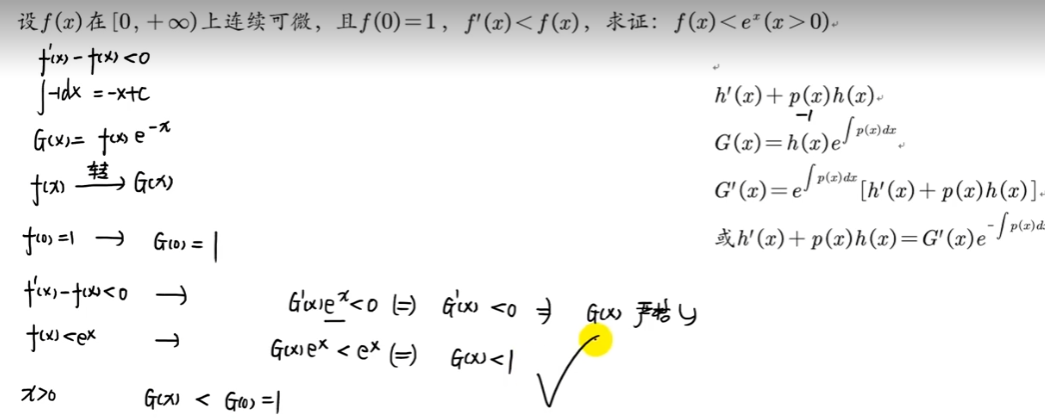 设f(x)在[0,+∞)上连续可微，且f(0)=1，f'(x)<f(x)，求证：f(x)<e^x(x>0).
f'(x)-f(x)<0
∫-1dx = -x+C
G(x)= f(x)e^{-x}
f(x) \xrightarrow{转} G(x)
f(0)=1 → G(0)=1
f'(x)-f(x)<0 → G'(x)e^x<0 (=) G'(x)<0 ⇒ G(x) 严格↘
f(x)<e^x → G(x)e^x < e^x (=) G(x)<1
x>0 G(x) < G(0)=1
h'(x)+p(x)h(x)
-1
G(x)=h(x)e^{∫p(x)dx}
G'(x)=e^{∫p(x)dx}[h'(x)+p(x)h(x)].
或h'(x)+p(x)h(x)=G'(x)e^{-∫p(x)d